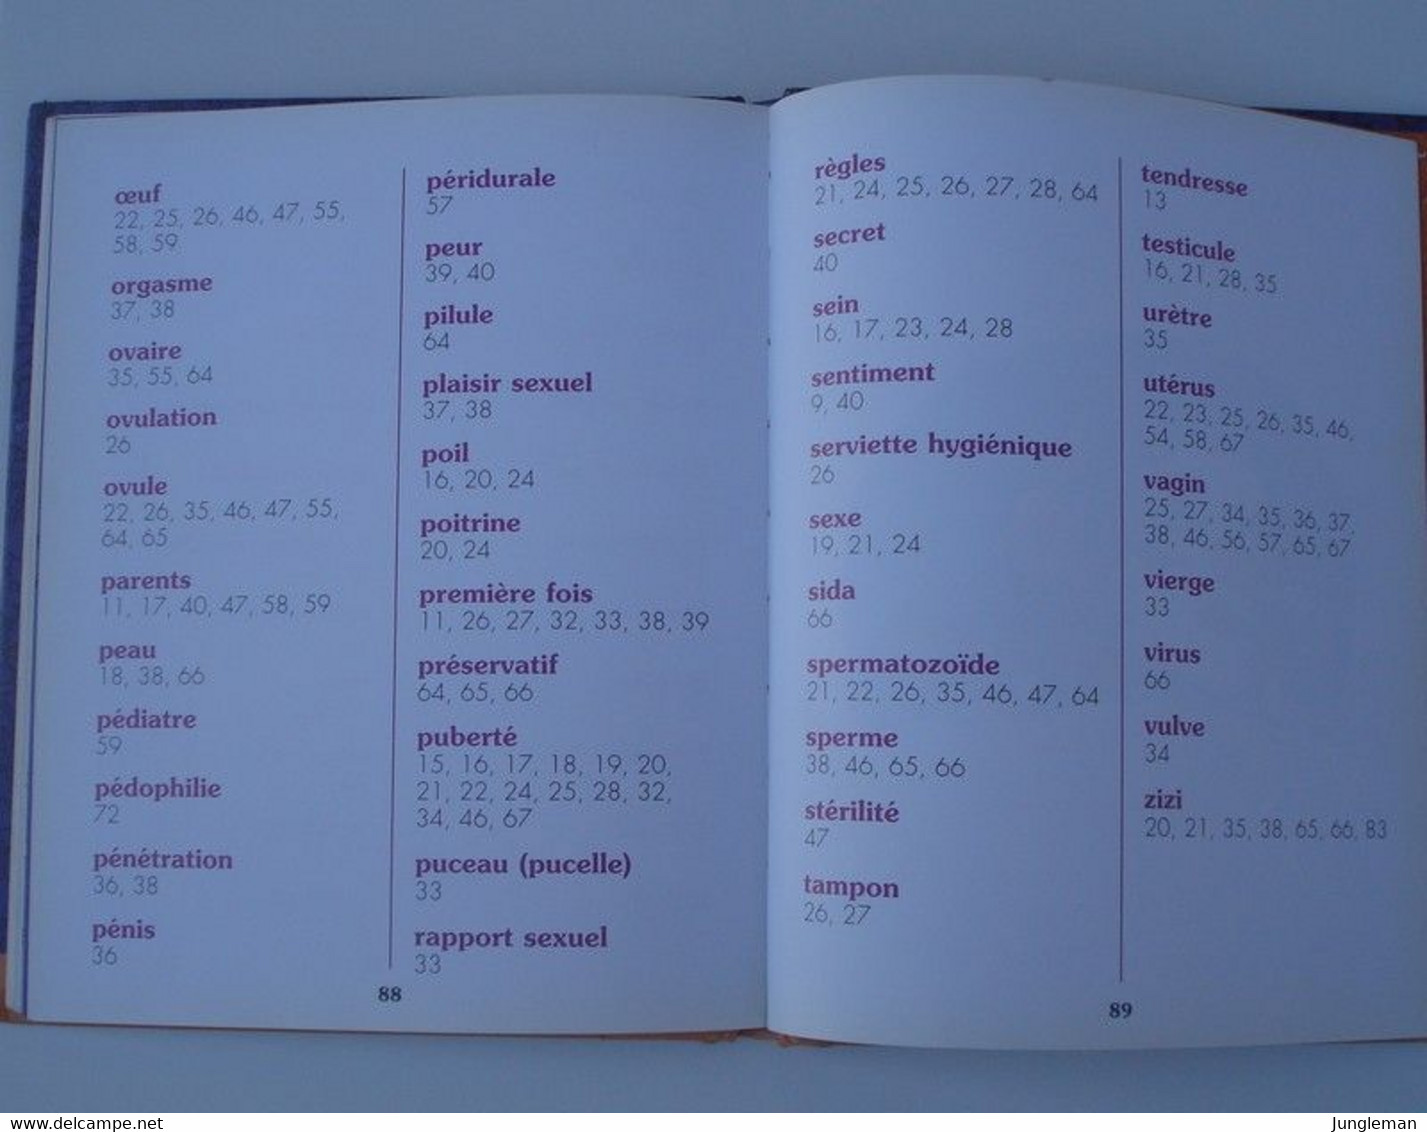 œuf
22, 25, 26, 46, 47, 55,
58, 59
orgasme
37, 38
ovaire
35, 55, 64
ovulation
26
ovule
22, 26, 35, 46, 47, 55,
64, 65
parents
11, 17, 40, 47, 58, 59
peau
18, 38, 66
pédiatre
59
pédophilie
72
pénétration
36, 38
pénis
36
péridurale
57
peur
39, 40
pilule
64
plaisir sexuel
37, 38
poil
16, 20, 24
poitrine
20, 24
première fois
11, 26, 27, 32, 33, 38, 39
préservatif
64, 65, 66
puberté
15, 16, 17, 18, 19, 20,
21, 22, 24, 25, 28, 32,
34, 46, 67
puceau (pucelle)
33
rapport sexuel
33
88
règles
21, 24, 25, 26, 27, 28, 64
secret
40
sein
16, 17, 23, 24, 28
sentiment
9, 40
serviette hygiénique
26
sexe
19, 21, 24
sida
66
spermatozoïde
21, 22, 26, 35, 46, 47, 64
sperme
38, 46, 65, 66
stérilité
47
tampon
26, 27
tendresse
13
testicule
16, 21, 28, 35
urètre
35
utérus
22, 23, 25, 26, 35, 46,
54, 58, 67
vagin
25, 27, 34, 35, 36, 37,
38, 46, 56, 57, 65, 67
vierge
33
virus
66
vulve
34
zizi
20, 21, 35, 38, 65, 66, 83
89
www.delcampe.net
Jungleman